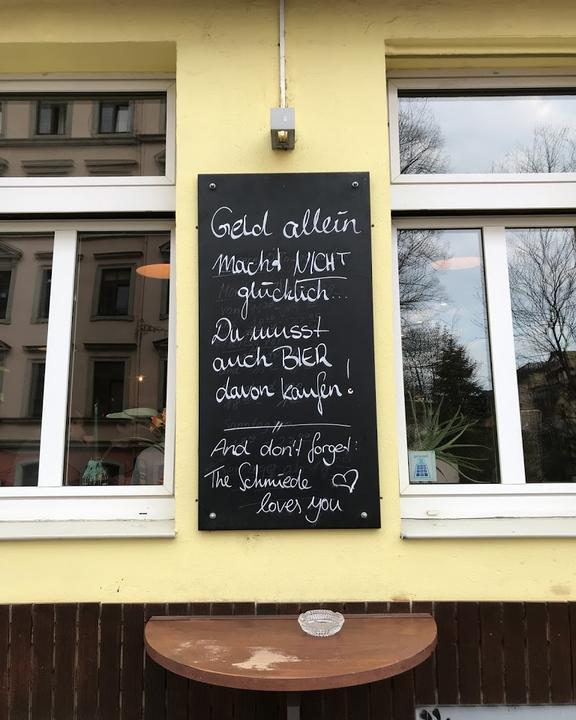 Geld allein
macht NICHT
glücklich...
Du musst
auch BIER
davon kaufen!
And don't forget:
The Schmiede ♡
loves you